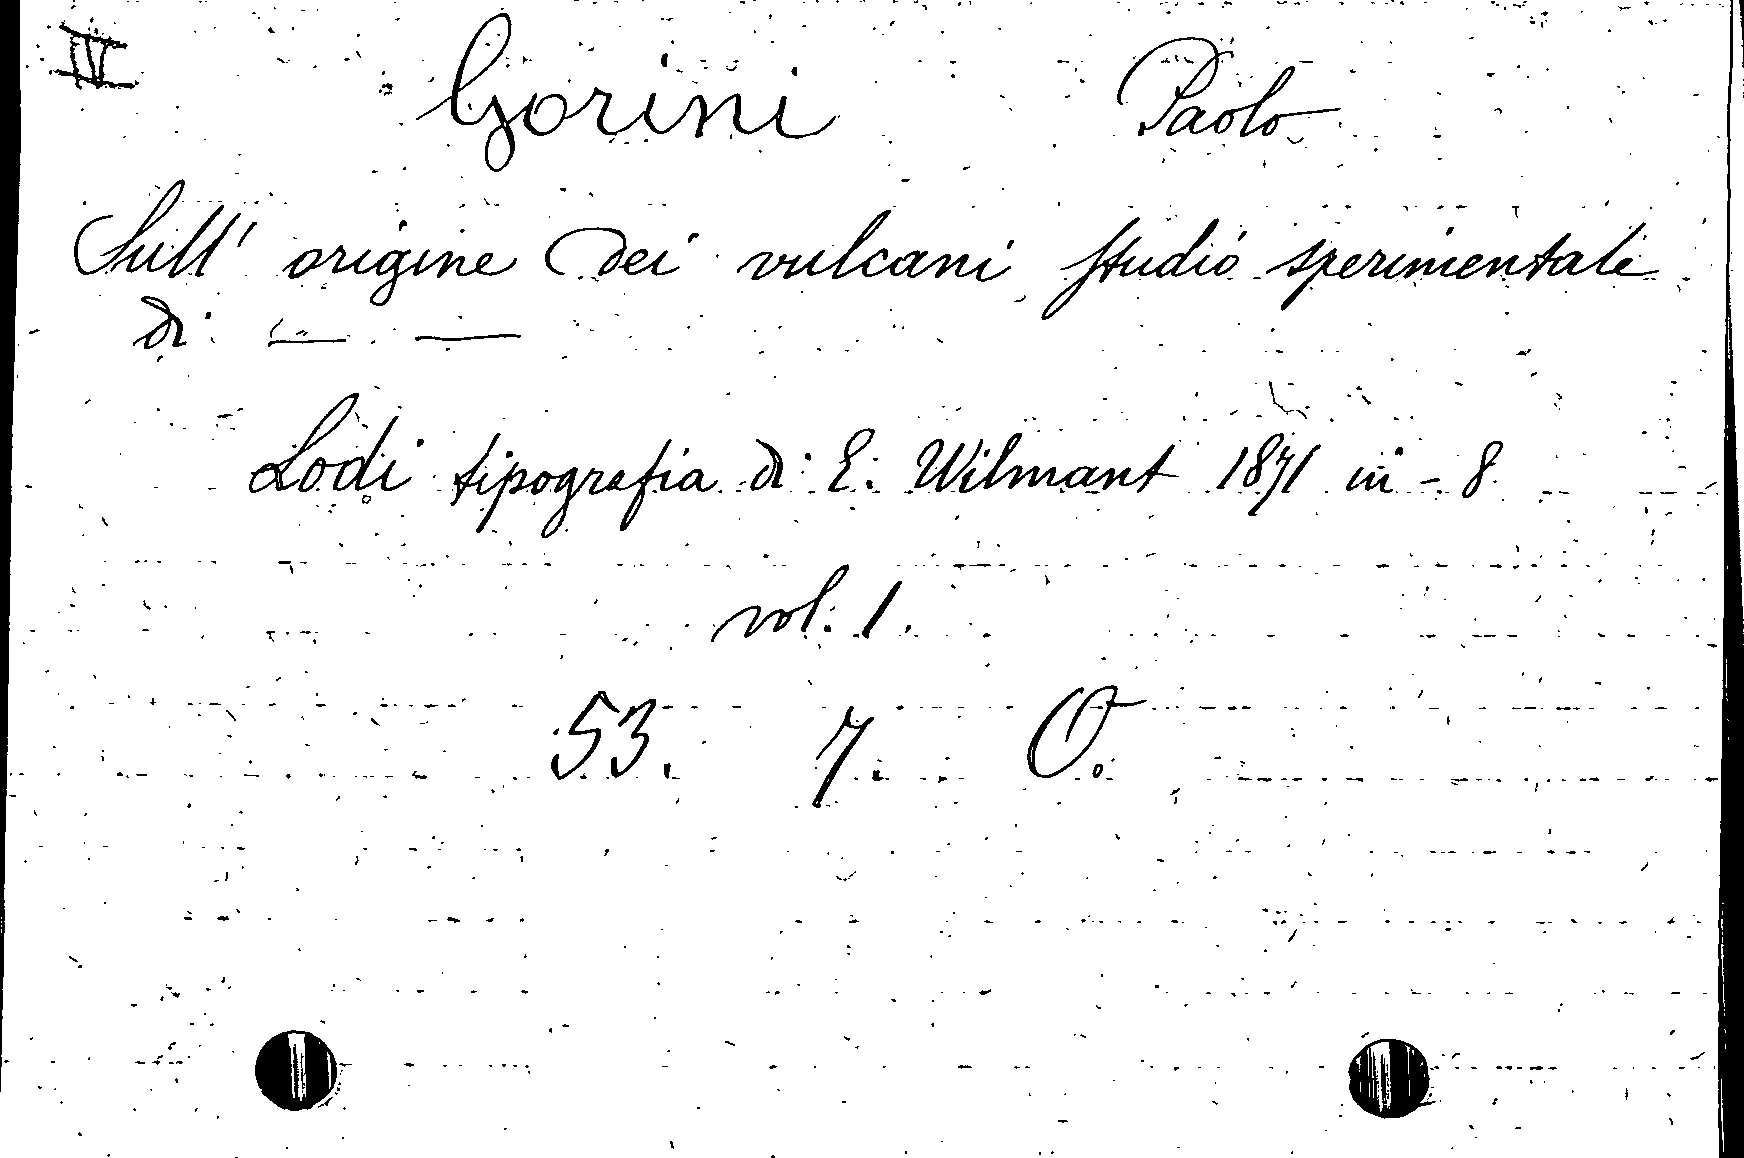 IV
Gorini Paolo
Sull' origine dei vulcani studio sperimentale
di — —
Lodi tipografia di E. Wilmant 1871 in-8
vol. 1.
53. 7. O.